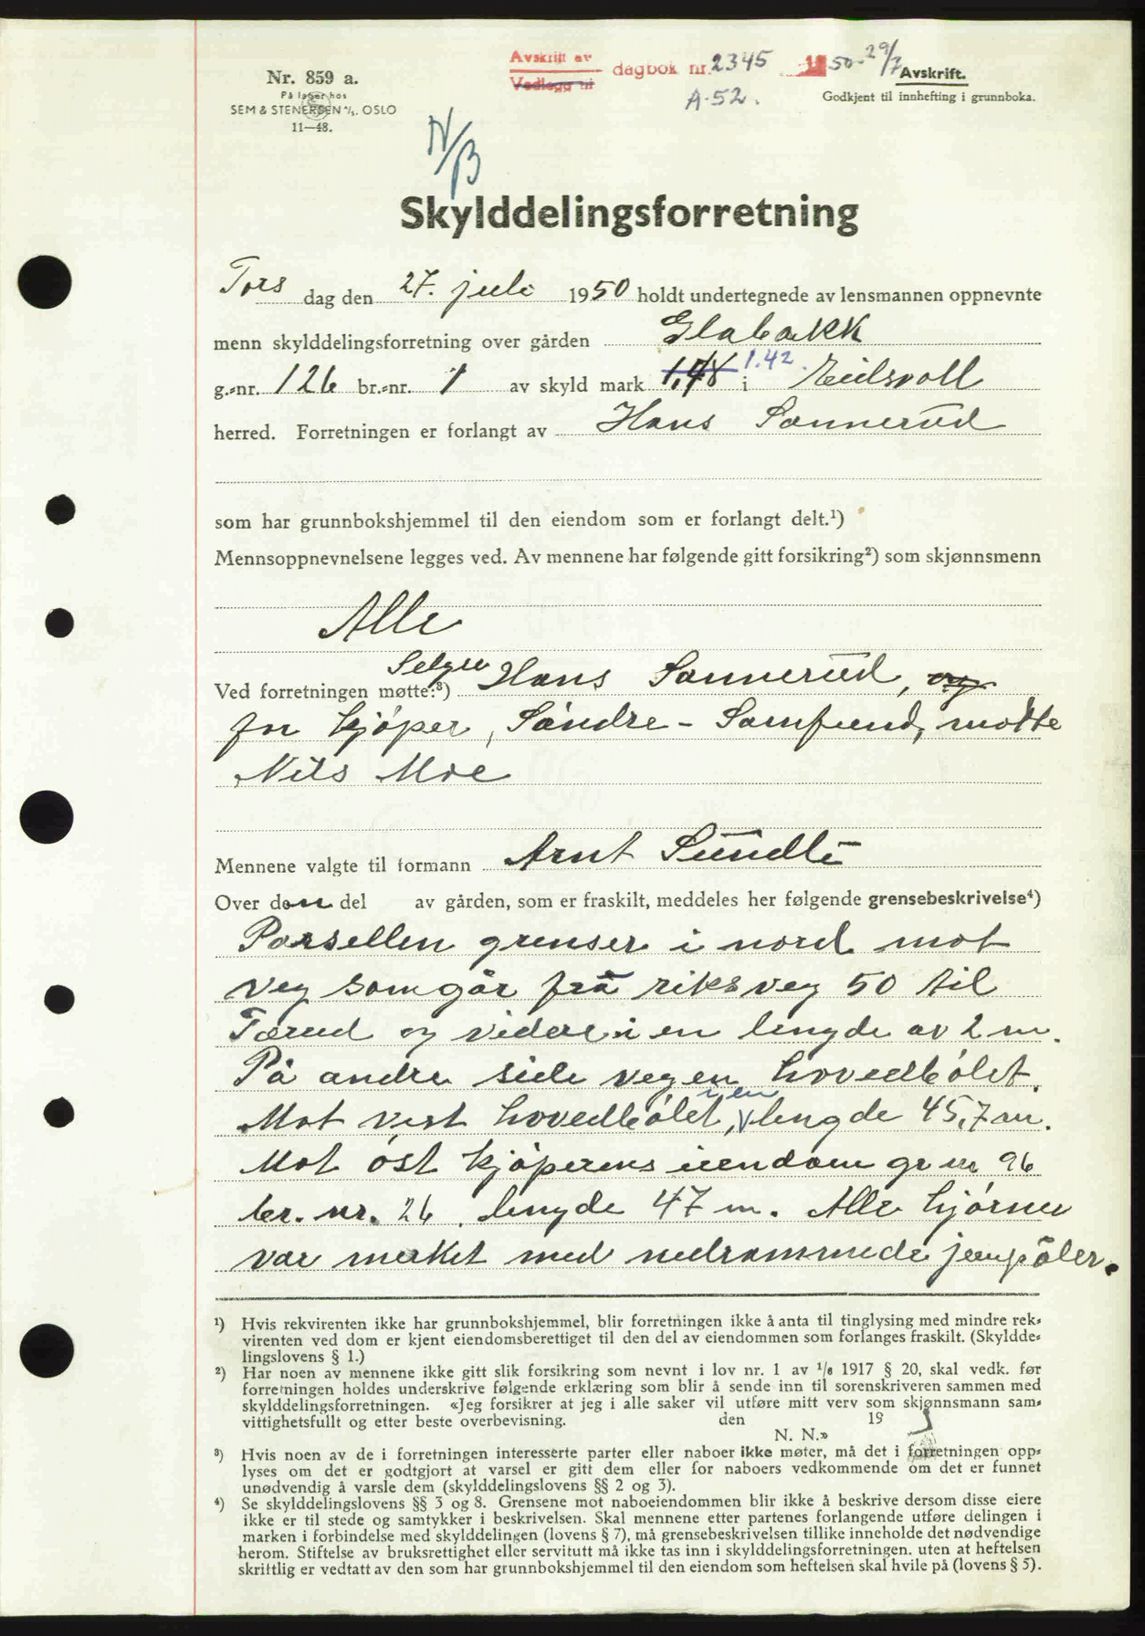 Avskrift av
Vedlegg til
dagbok nr. 2345 1950-29/7
A-52.
Avskrift.
Godkjent til innhefting i grunnboka.
Nr. 859 a.
På lager hos
SEM & STENERSEN A/S. OSLO
11—48.
N/B
Skylddelingsforretning
Tors dag den 27. juli 1950 holdt undertegnede av lensmannen oppnevnte
menn skylddelingsforretning over gården Glabakk
g.-nr. 126 br.-nr. 1 av skyld mark 1,48 1.42. i Eidsvoll
herred. Forretningen er forlangt av Hans Sannerud
som har grunnbokshjemmel til den eiendom som er forlangt delt.¹)
Mennsoppnevnelsene legges ved. Av mennene har følgende gitt forsikring²) som skjønnsmenn
Alle
Ved forretningen møtte:³) Selger Hans Sannerud, og
for kjøper, Søndre-Samfund, møtte
Nils Moe
Mennene valgte til formann Arnt Sundli
Over den del av gården, som er fraskilt, meddeles her følgende grensebeskrivelse⁴)
Parsellen grenser i nord mot
veg som går frå riksveg 50 til
Tærud og videre i en lengde av 2 m.
På andre side vegen hovedbølet.
Mot vest hovedbølet, i en lengde 45,7 m.
Mot øst kjøperens eiendom gr. nr. 96
br. nr. 26, lengde 47 m. Alle hjørner
var merket med nedrammede jernpåler.
¹) Hvis rekvirenten ikke har grunnbokshjemmel, blir forretningen ikke å anta til tinglysing med mindre rek-
virenten ved dom er kjent eiendomsberettiget til den del av eiendommen som forlanges fraskilt. (Skyldde-
lingslovens § 1.)
²) Har noen av mennene ikke gitt slik forsikring som nevnt i lov nr. 1 av ¹/₆ 1917 § 20, skal vedk. før
forretningen holdes underskrive følgende erklæring som blir å sende inn til sorenskriveren sammen med
skylddelingsforretningen. «Jeg forsikrer at jeg i alle saker vil utføre mitt verv som skjønnsmann sam-
vittighetsfullt og etter beste overbevisning. den 19
N. N.»
³) Hvis noen av de i forretningen interesserte parter eller naboer ikke møter, må det i forretningen opp-
lyses om det er godtgjort at varsel er gitt dem eller for naboers vedkommende om det er funnet
unødvendig å varsle dem (skylddelingslovens §§ 2 og 3).
⁴) Se skylddelingslovens §§ 3 og 8. Grensene mot naboeiendommen blir ikke å beskrive dersom disse eiere
ikke er til stede og samtykker i beskrivelsen. Skal mennene etter partenes forlangende utføre delingen i
marken i forbindelse med skylddelingen (lovens § 7), må grensebeskrivelsen tillike inneholde det nødvendige
herom. Stiftelse av bruksrettighet eller servitutt må ikke tas inn i skylddelingsforretningen, uten at heftelsen
skriftlig er vedtatt av den som har grunnbokshjemmel til den eiendom som heftelsen skal hvile på (lovens § 5).